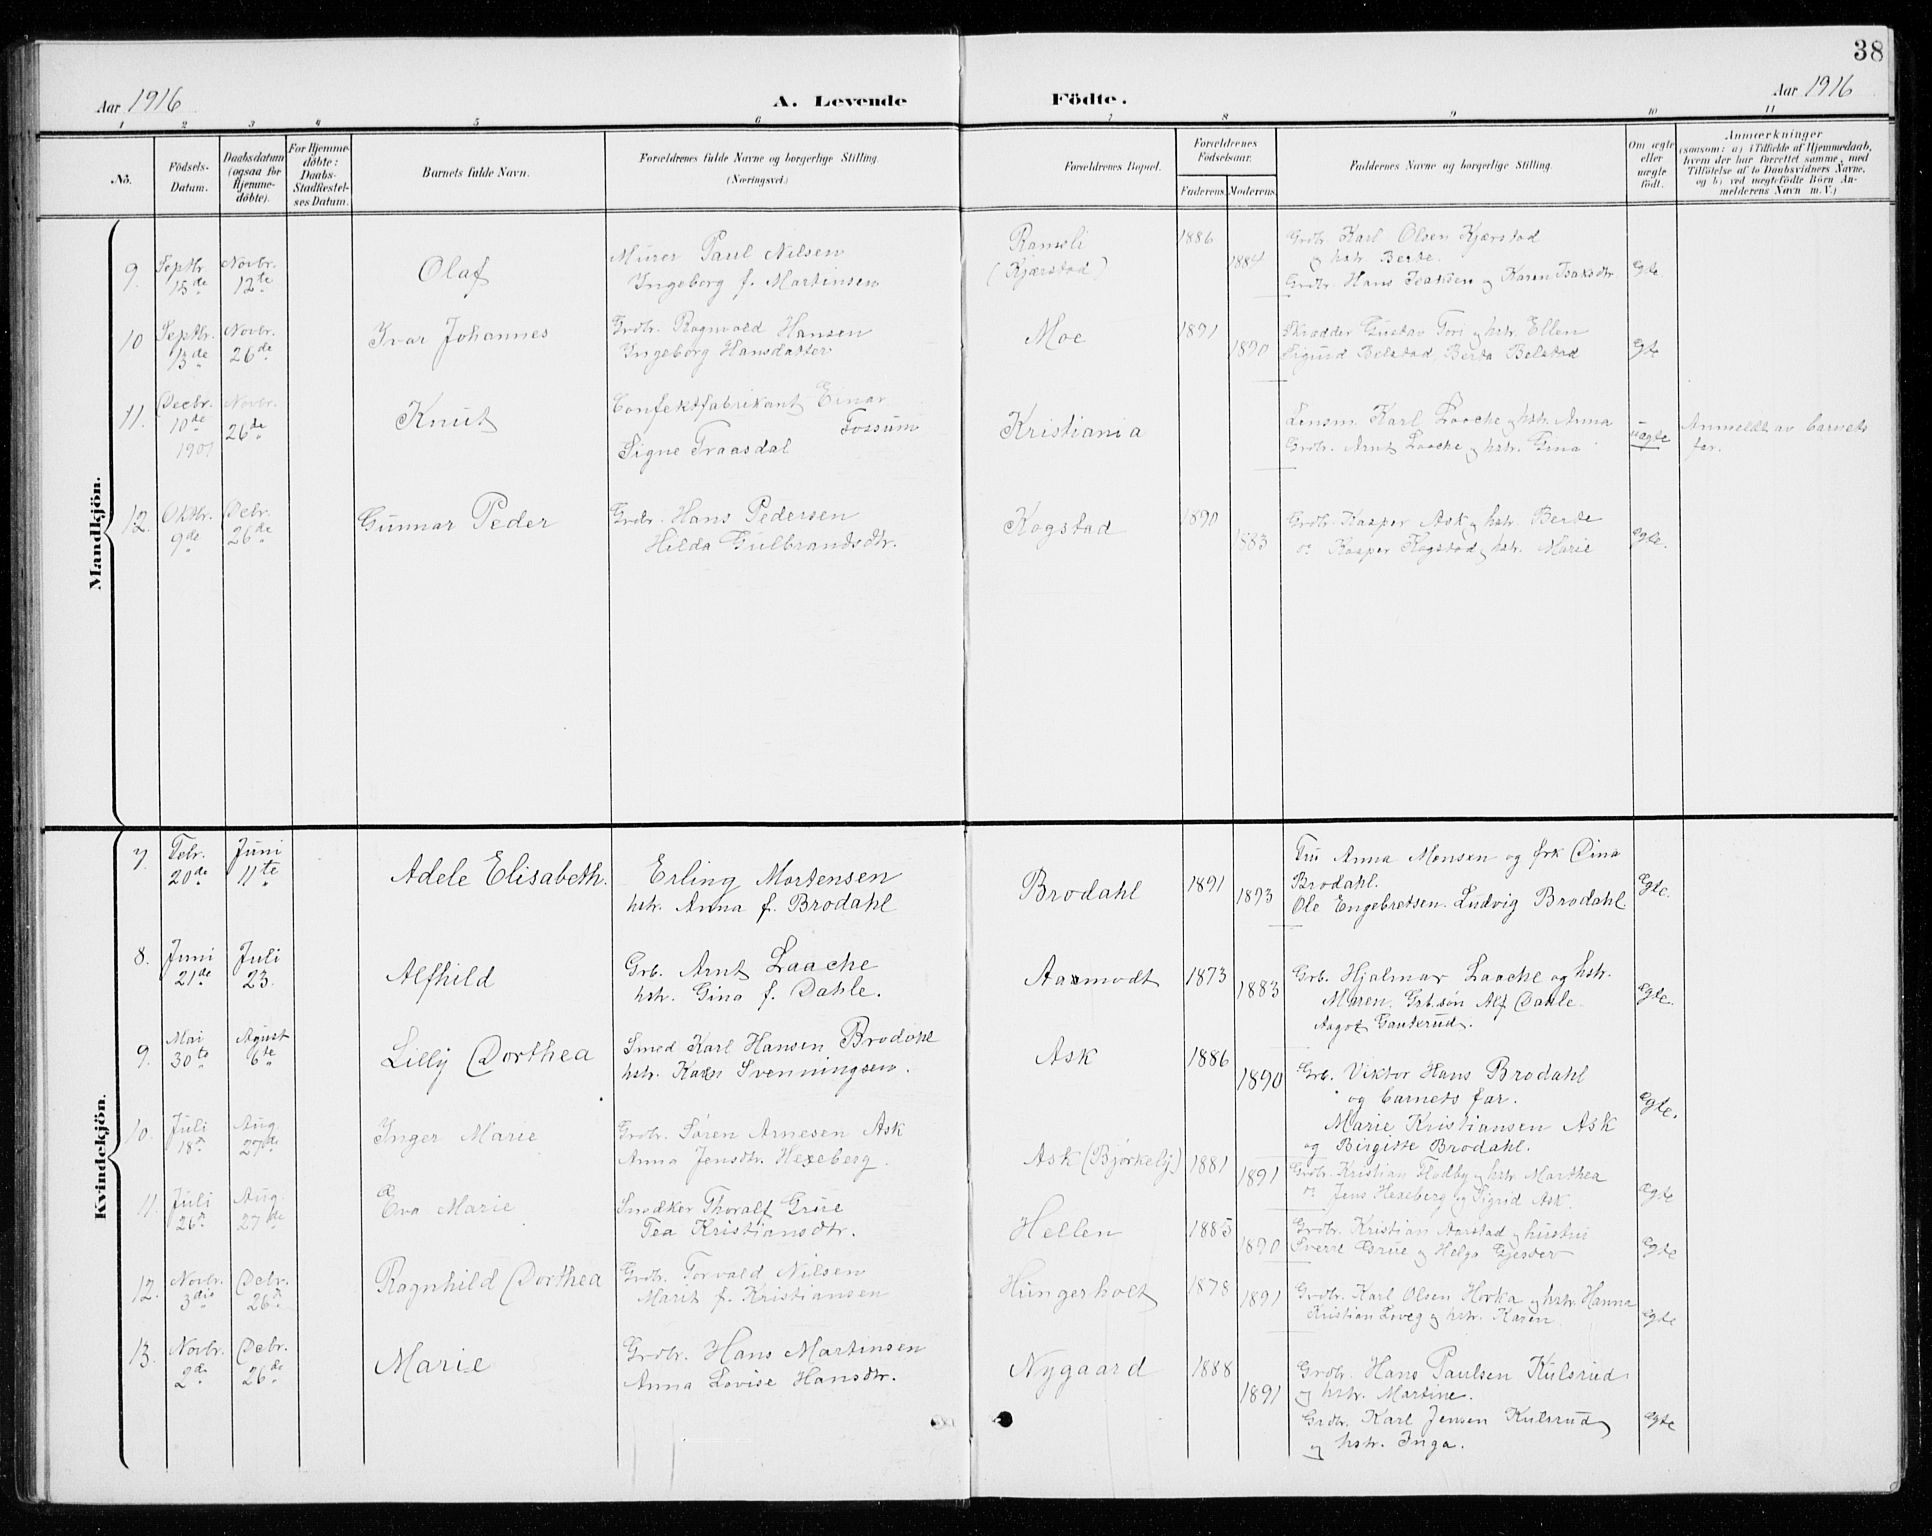 38
Aar 1916 A. Levende Födte. Aar 1916
1 2 3 4 5 6 7 8 9 10 11
No. Födsels-Datum. Daabsdatum (ogsaa for Hjemmedöbte). For Hjemmedöbte: Daabs-Stadfestelses Datum. Barnets fulde Navn. Forældrenes fulde Navne og borgerlige Stilling. (Næringsvei.) Forældrenes Bopæl. Forældrenes Födselsaar. Faderens. Moderens. Faddernes Navne og borgerlige Stilling. Om ægte eller uægte födt. Anmærkninger (saasom: a) i Tilfælde af Hjemmedaab, hvem der har forrettet samme, med Tilföielse af to Daabsvidners Navne, og b) ved uægtefödte Börn Anmelderens Navn m. V.)
Mandkjön.
9. Septbr. 15de Novbr. 12te Olaf Murer Paul Nilsen
Ingeborg f. Martinsen Ramsli
(Kjærstad) 1886 1884 Grdbr. Karl Olsen Kjærstad
og hstr. Berte.
Grdbr. Hans Isaksen og Karen Isaksdtr. Egte
10 Septbr. 13de Novbr. 26de Ivar Johannes Grdbr. Ragnvald Hansen
Ingeborg Hansdatter Moe 1891 1890 Skrædder Gustav Tori og hstr. Ellen
Sigurd Belstad Berta Belstad Egte
11. Decbr. 10de 1907 Novbr. 26de Knut Confektfabrikant Einar
Fossum
Signe Traasdal Kristiania Lensm. Karl Laache og hstr. Anna
Grdbr. Arnt Laache og hstr. Gina uægte Anmeldt av barnets
far.
12. Oktbr. 9de Decbr. 26de Gunnar Peder Grdbr. Hans Pedersen
Hilda Gulbrandsdtr. Kogstad 1890 1883 Grdbr. Kasper Ask og hstr. Berte
" Kasper Kogstad og hstr. Marie Egte.
Kvindekjön.
7. Febr. 20de Juni 11te Adele Elisabeth. Erling Mortensen
hstr. Anna f. Brodahl Brodahl 1891 1893 Fru Anna Monsen og frk Dina
Brodahl.
Ole Engebretsen. Ludvig Brodahl. Egte.
8. Juni 21de Juli 23. Alfhild Grb. Arnt Laache
hstr. Gina f. Dahle. Aasmodt 1873 1883 Grb. Hjalmar Laache og hstr.
Maren. Grb.søn Alf Dahle.
Aagot Ganderud. Egte.
9. Mai 30te Agust 6te Lilly Dorthea Smed Karl Hansen Brodahl
hstr. Karen Svenningsen. Ask 1886 1890 Grb. Viktor Hans Brodahl
og barnets far.
Marie Kristiansen Ask
og Birgitte Brodahl. Egte.
10. Juli 18de Aug. 27de Inger Marie Grdbr. Søren Arnesen Ask
Anna Jensdtr. Hexeberg. Ask (Bjørkely) 1881 1891 Grdbr. Kristian Flodby og hstr. Marthea
" Jens Hexeberg og Sigrid Ask. Egte
11. Juli 26de Aug. 27de Eva Marie Snedker Thoralf Grue
Tea Kristiansdtr. Hellen 1885 1890 Grdbr. Kristian Aarstad og hustru
Sverre Grue og Helga Gjesder Egte
12. Novbr. 3die Decbr. 26de Ragnhild Dorthea Grdbr. Torvald Nilsen
Marit f. Kristiansen Hungerholt 1878 1891 Grdbr. Karl Olsen Horka og hstr. Hanna
Kristian Loveg og hstr. Karen Egte
13. Novbr. 2de Decbr. 26de Marie Grdbr. Hans Martinsen
Anna Lovise Hansdtr. Nygaard 1888 1891 Grdbr. Hans Paulsen Kulsrud
og hstr. Martine.
Grdbr. Karl Jensen Kulsrud
og hstr. Inga. Egte